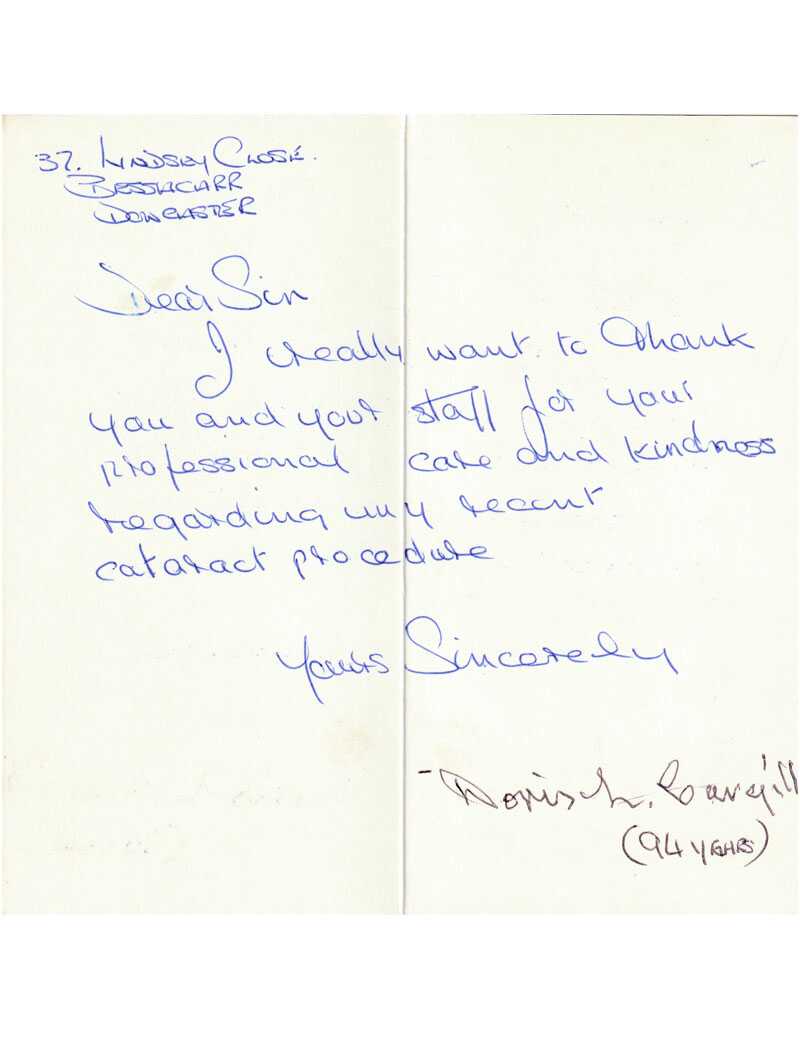 37. LINDSEY CLOSE.
BESSACARR
DONCASTER
Dear Sir
I really want to thank
you and your staff for your
professional care and kindness
regarding my recent
cataract procedure
Yours Sincerely
Doris L. Cargill
(94 YEARS)